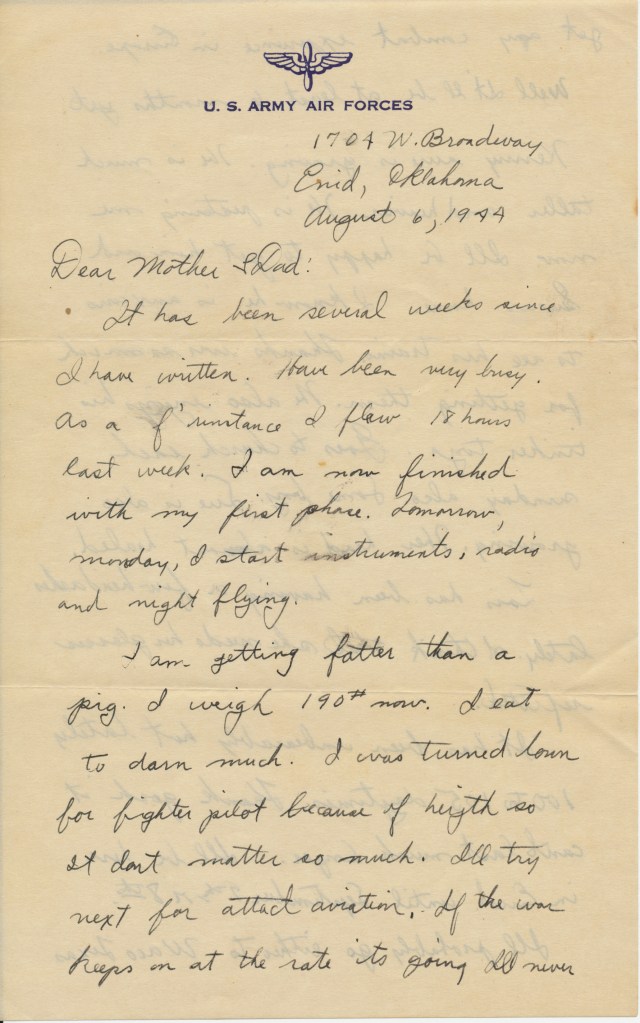 U. S. ARMY AIR FORCES
1704 W. Broadway
Enid, Oklahoma
August 6, 1944
Dear Mother & Dad:
It has been several weeks since
I have written. Have been very busy.
As a f'rinstance I flew 18 hours
last week. I am now finished
with my first phase. Tomorrow,
monday, I start instruments, radio
and night flying.
I am getting fatter than a
pig. I weigh 190# now. I eat
to darn much. I was turned down
for fighter pilot because of heigth so
it dont matter so much. I'll try
next for attact aviation. If the war
keeps on at the rate its going I'll never